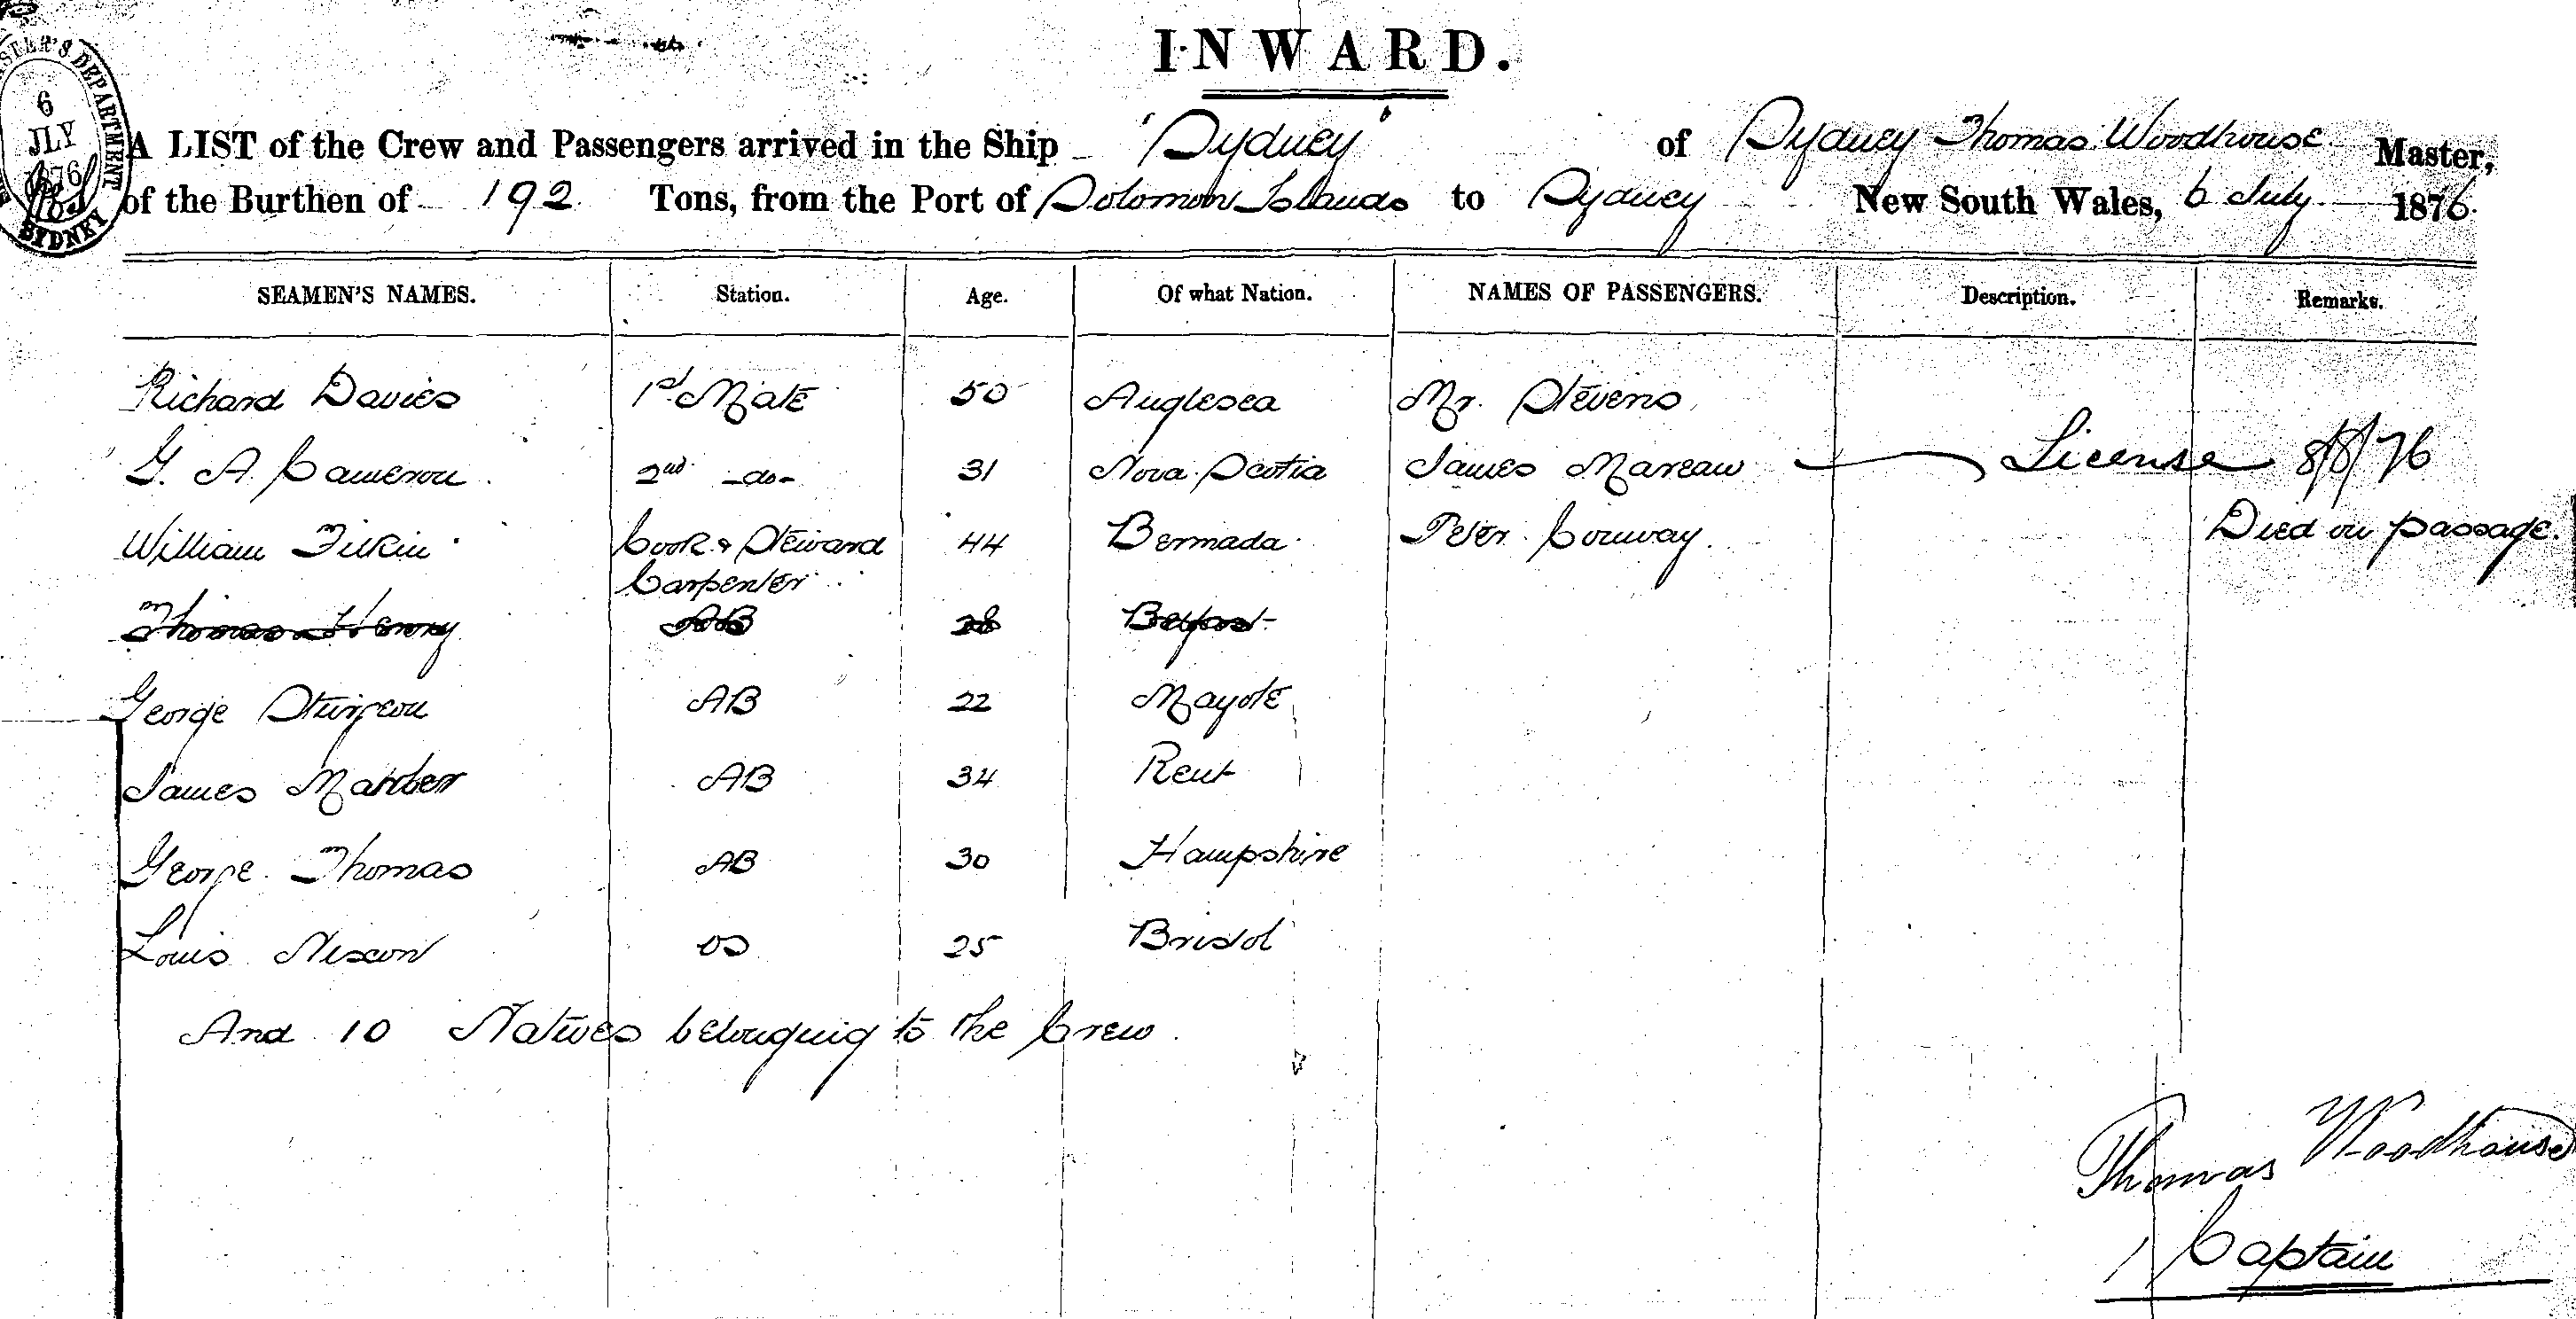 INWARD.
MASTER'S DEPARTMENT
6
JLY
1876
SYDNEY
A LIST of the Crew and Passengers arrived in the Ship "Sydney" of Sydney Thomas Woodhouse Master,
of the Burthen of 192 Tons, from the Port of Solomon Islands to Sydney New South Wales, 6 July 1876.
SEAMEN'S NAMES. Station. Age. Of what Nation. NAMES OF PASSENGERS. Description. Remarks.
Richard Davies 1st Mate 50 Anglesea Mr. Stevens
G. A. Cameron 2nd -do- 31 Nova Scotia James Mareau License 8/8/76
William Filkin Cook & Steward 44 Bermada Peter Conway. Died on passage.
Carpenter
Thomas Henry AB 28 Belfast
George AB 22 Mayote
James AB 34 Kent
George Thomas AB 30 Hampshire
Louis Nixon OS 25 Bristol
And 10 Natives belonging to the Crew.
Thomas Woodhouse
Captain